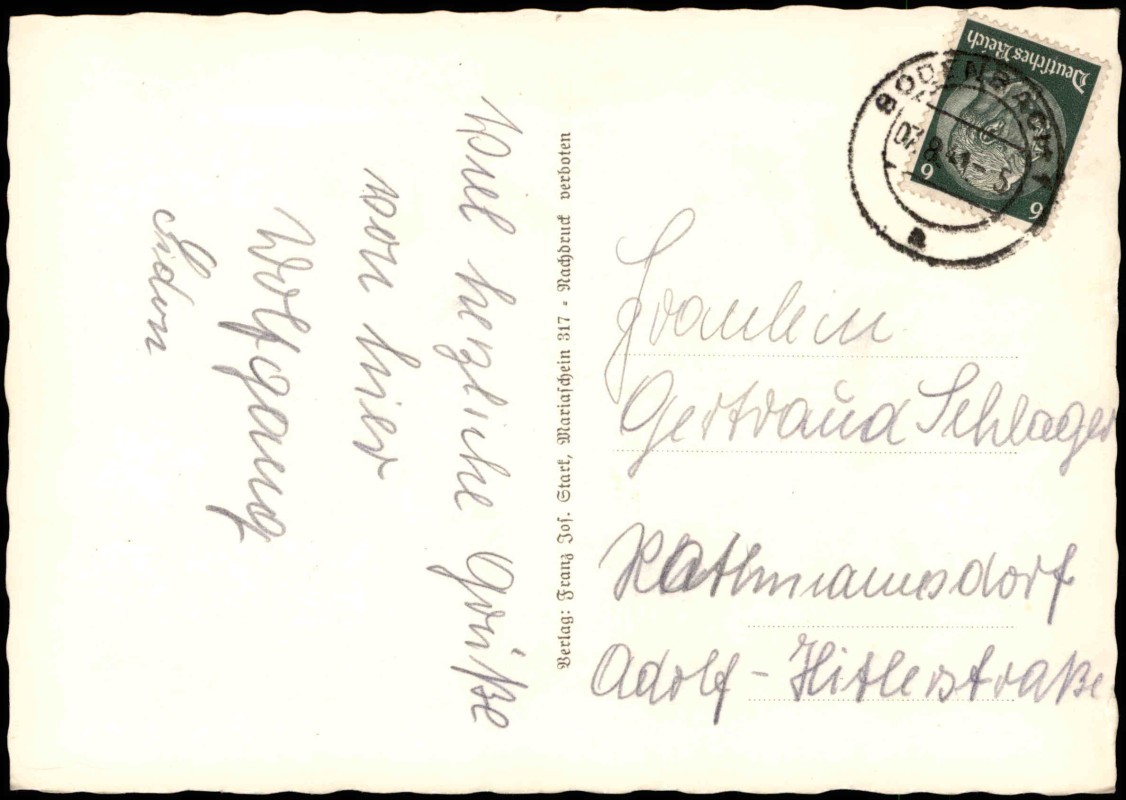 Viel herzliche Grüße
von hier
Wolfgang
Verlag: Franz Jos. Stark, Mariaschein 317 - Nachdruck verboten
Deutsches Reich
6 6
BODENBACH 1
07.8.41-5
a
Fräulein
Gertraud Schlager
Rathmannsdorf
Adolf-Hitlerstraße